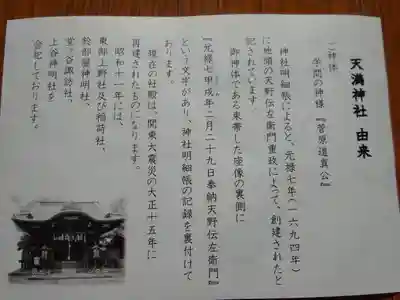 天満神社 由来
ご神体
学問の神様 『菅原道真公』
神社明細帳によると、元禄七年(一六九四年)
に地頭の天野伝左衛門重政によって、創建されたと
記されています
御神体である束帯した座像の裏側に
『元禄七甲戌年二月二十九日奉納天野伝左衛門』
という文字があり、神社明細帳の記録を裏付けて
おります。
現在の社殿は、関東大震災の大正十五年に
再建されたものになります。
昭和十一年には、
東郷上野社及び稲荷社、
於部屋神明社、
堂ヶ谷諏訪社、
上谷神明社を
合祀しております。